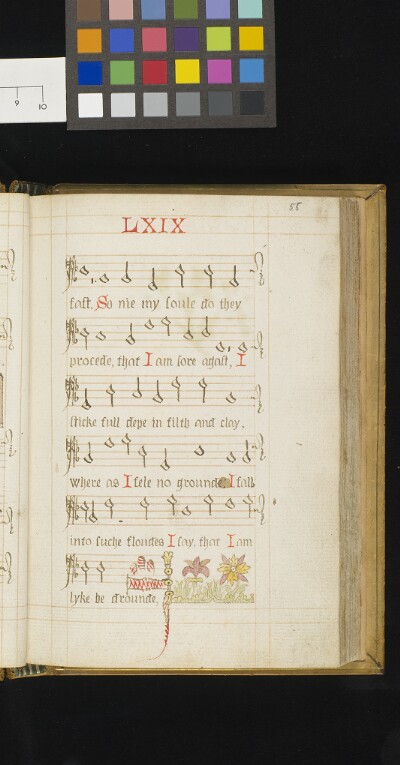 9 10
55
LXIX
fast, So nie my soule do they
procede, that I am sore agast, I
sticke full depe in filth and clay,
where as I fele no grounde, I fall
into suche floudes I say, that I am
lyke be drounde,